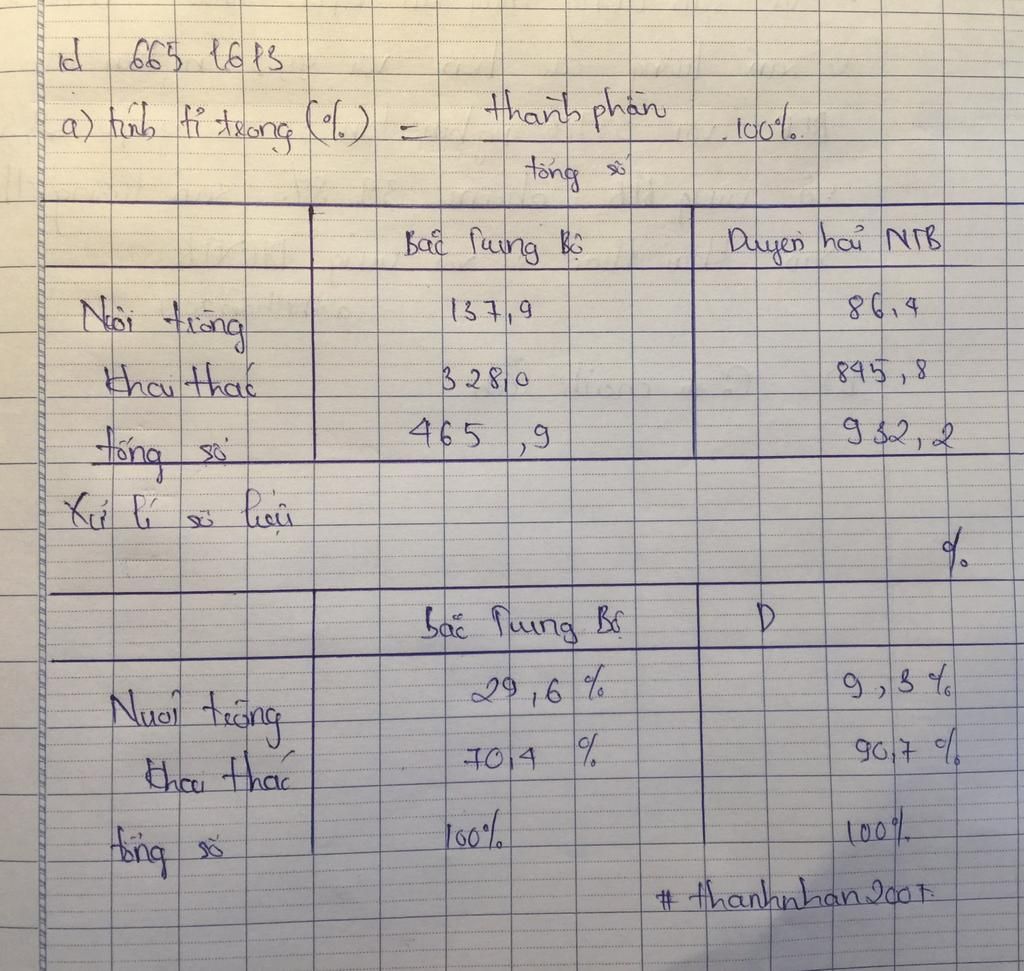 id 6651613
a) tính tỉ trọng (%) = thành phần / tổng số .100%
Bắc Trung Bộ Duyên hải NTB
Nuôi trồng 137,9 86,4
khai thác 328,0 845,8
tổng số 465,9 932,2
Xử lí số liệu
%
Bắc Trung Bộ D
Nuôi trồng 29,6 % 9,3 %
khai thác 70,4 % 90,7 %
tổng số 100% 100%
# thanhnhan2007.